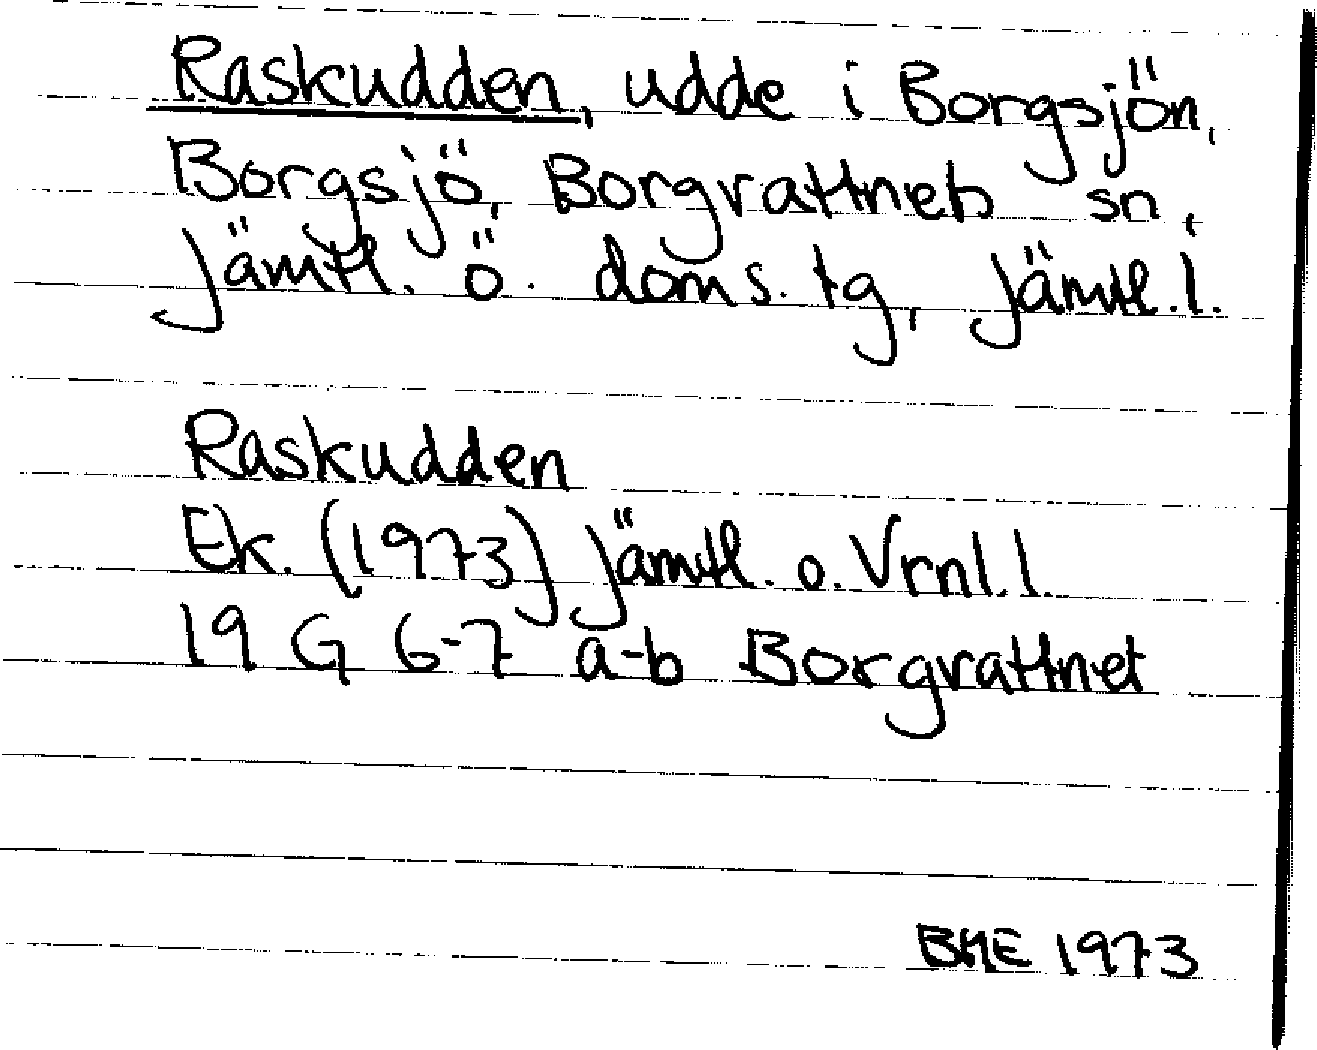 Raskudden, udde i Borgsjön,
Borgsjö, Borgvattnets sn,
Jämtl. ö. doms. tg, Jämtl. l.
Raskudden
Ek. (1973) Jämtl. o. Vrnl. l.
19 G 6-7 a-b Borgvattnet
BME 1973